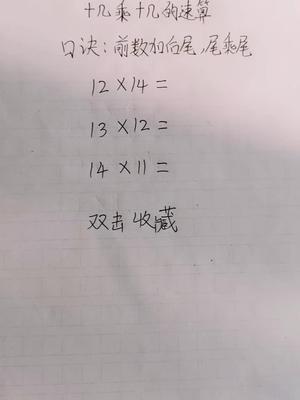 十几乘十几的速算
口诀：前数加后尾，尾乘尾
12×14=
13×12=
14×11=
双击收藏